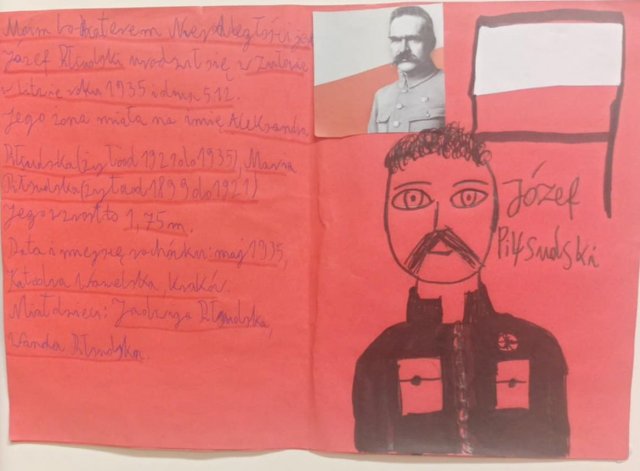 Moim bohaterem Niepodległości jest
Józef Piłsudski urodził się w Zułowie
w Litwie roku 1935 i dnia 5.12.
Jego żona miała na imię Aleksandra
Piłsudska (żyła od 1921 do 1935), Maria
Piłsudska (żyła od 1899 do 1921)
Jego wzrost to 1,75 m.
Data i miejsce pochówku: maj 1935,
Katedra Wawelska, Kraków.
Miał dzieci: Jadwiga Piłsudska,
Wanda Piłsudska.
Józef
Piłsudski